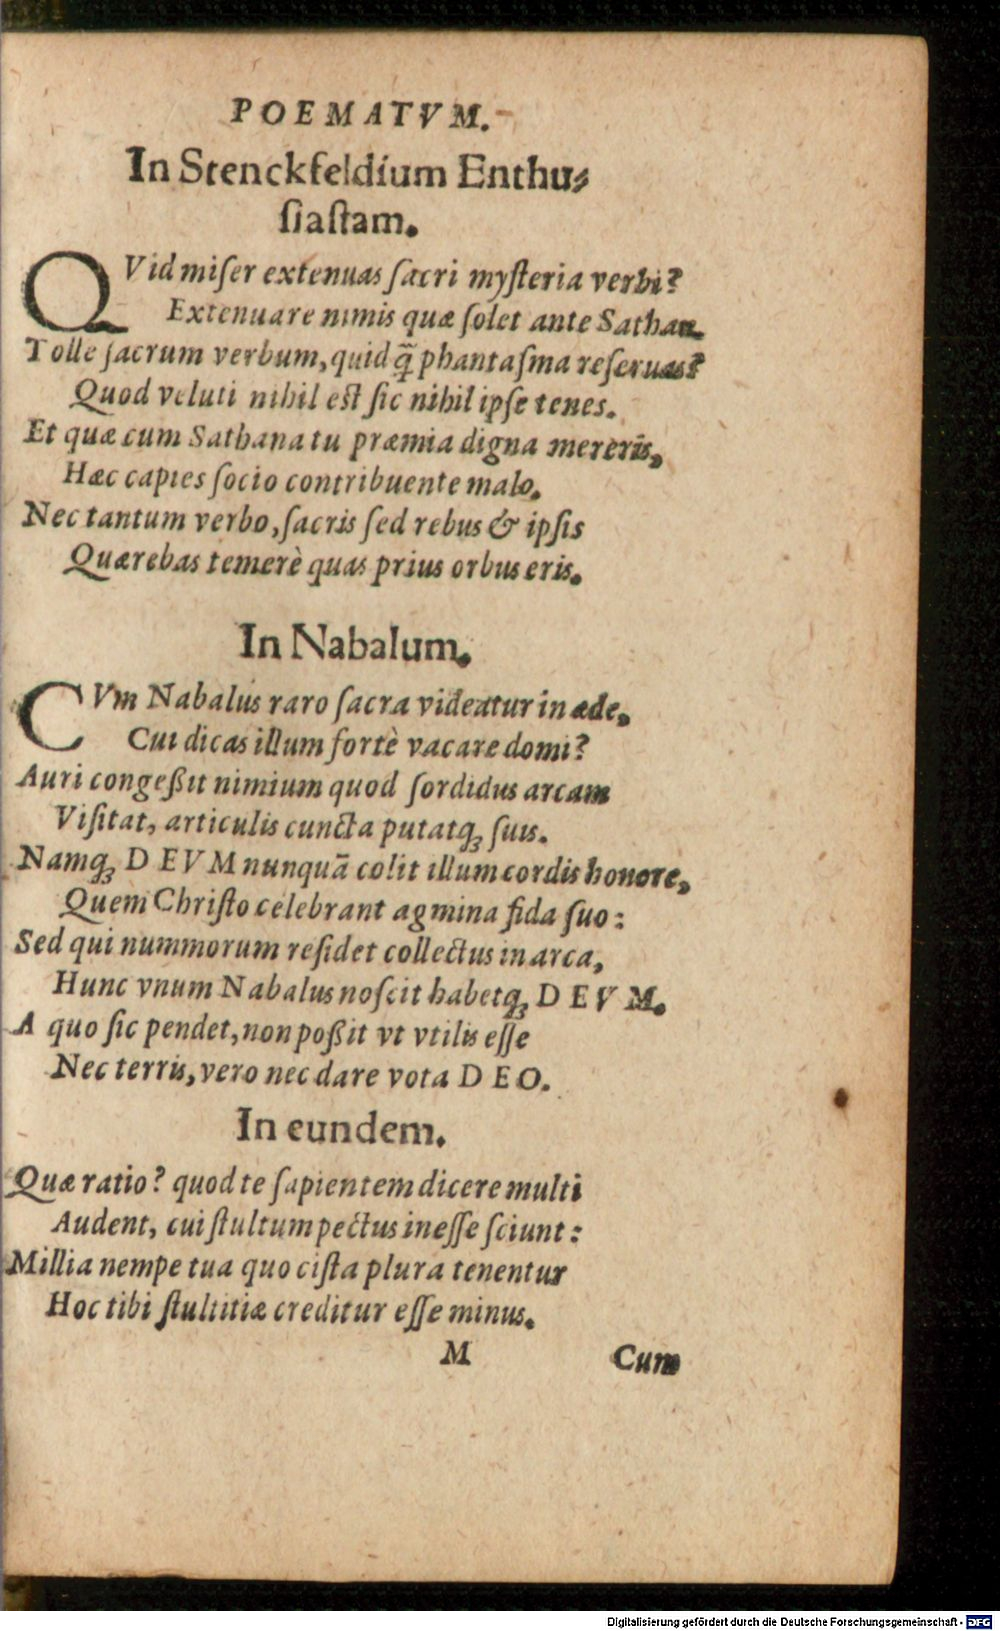 POEMATVM.
In Stenckfeldium Enthu⸗
ſiaſtam.
QVid miſer extenuas ſacri myſteria verbi?
Extenuare nimis quæ ſolet ante Sathan.
Tolle ſacrum verbum, quid q̃ phantaſma reſeruas?
Quod veluti nihil eſt ſic nihil ipſe tenes.
Et quæ cum Sathana tu præmia digna mereris,
Hæc capies ſocio contribuente malo.
Nec tantum verbo, ſacris ſed rebus & ipſis
Quærebas temerè quas prius orbus eris.
In Nabalum.
CVm Nabalus raro ſacra videatur in æde,
Cui dicas illum fortè vacare domi?
Auri congeßit nimium quod ſordidus arcam
Viſitat, articulis cuncta putatq́ꝫ ſuis.
Namqꝫ DEVM nunquã colit illum cordis honore,
Quem Chriſto celebrant agmina fida ſuo:
Sed qui nummorum reſidet collectus in arca,
Hunc vnum Nabalus noſcit habetqꝫ DEVM.
A quo ſic pendet, non poßit vt vtilis eſſe
Nec terris, vero nec dare vota DEO.
In eundem.
Quæ ratio? quod te ſapientem dicere multi
Audent, cui ſtultum pectus ineſſe ſciunt:
Millia nempe tua quo ciſta plura tenentur
Hoc tibi ſtultitiæ creditur eſſe minus.
M Cum
Digitalisierung gefördert durch die Deutsche Forschungsgemeinschaft - DFG